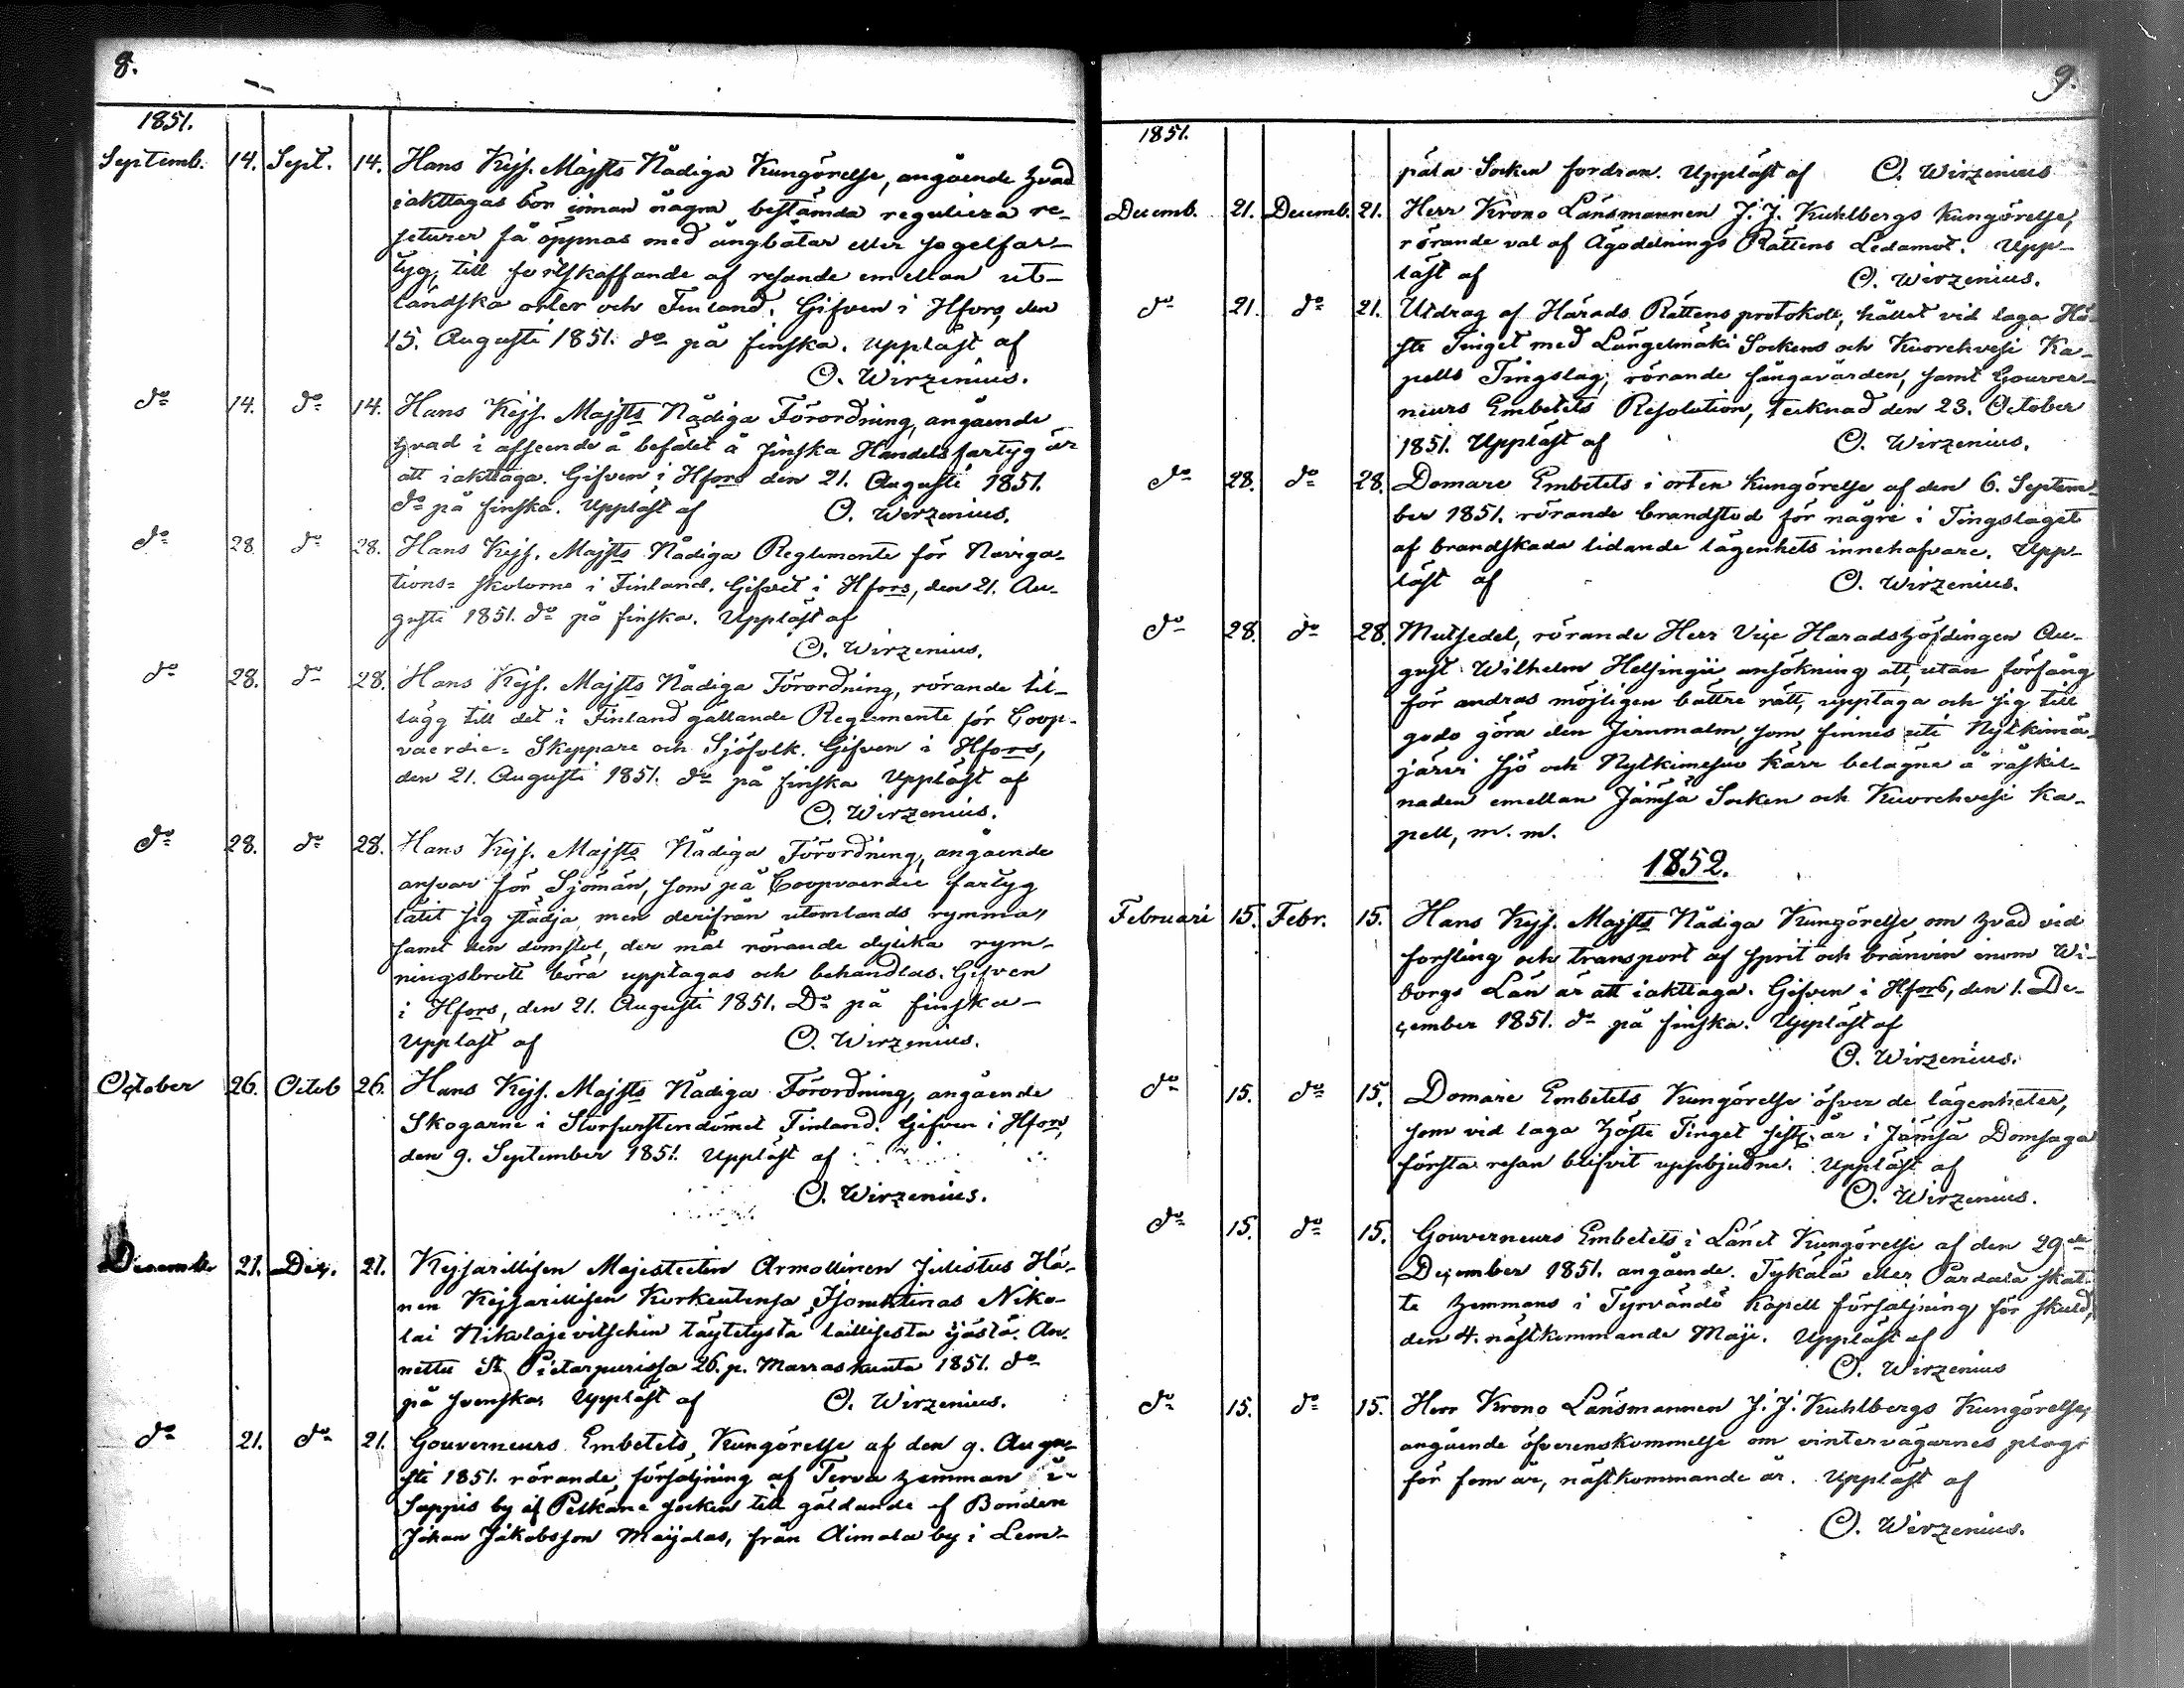 8.
1851.
Septemb. 14. Sept. 14. Hans Kejs. Majsts Nådiga Kungörelse, angående hvad
iakttagas bör innan några bestämda reguliera re-
seturer få öppnas med ångbåtar eller segelfar-
tyg, till fortskaffande af resande emellan ut-
ländska orter och Finland. Gifven i Hfors, den
15. Augusti 1851. do på finska. Uppläst af
O. Wirzenius.
do 14. do 14. Hans Kejs. Majsts Nådiga Förordning, angående
hvad i afseende å befälet å Finska Handelsfartyg är
att iakttaga. Gifven i Hfors den 21. Augusti 1851.
do på finska. Uppläst af O. Wirzenius.
do 28 do 28. Hans Kejs. Majsts Nådiga Reglemente för Naviga-
tions= skolorne i Finland. Gifvet i Hfors, den 21. Au-
gusti 1851. do på finska. Uppläst af
O. Wirzenius.
do 28. do 28. Hans Kejs. Majsts Nådiga Förordning, rörande til-
lägg till det i Finland gällande Reglemente för Coop-
vaerdie= Skeppare och Sjöfolk. Gifven i Hfors,
den 21. Augusti 1851. do på finska Uppläst af
O. Wirzenius.
do 28. do 28. Hans Kejs. Majsts Nådiga Förordning, angående
ansvar för Sjömän, som på Coopvaerdie fartyg
låtit sig städja, men derifrån utomlands rymma,
samt den domstol, der mål rörande dylika rym-
ningsbrott böra upptagas och behandlas. Gifven
i Hfors, den 21. Augusti 1851. Do på finska
Uppläst af O. Wirzenius.
October 26. Octob 26. Hans Kejs. Majsts Nådiga Förordning, angående
Skogarne i Storfurstendömet Finland. Gifven i Hfors,
den 9. September 1851. Uppläst af
O. Wirzenius.
Decemb. 21. Dec. 21. Kejsarillisen Majesteetin Armollinen Julistus Hä-
nen Kejsarillisen Korkeutensa Isoruhtinas Niko-
lai Nikolajevitschin täytetystä laillisesta ijästä. An-
nettu St. Pietarpurissa 26. p. Marraskuuta 1851. do
på svenska. Uppläst af O. Wirzenius.
do 21. do 21. Gouverneurs Embetets Kungörelse af den 9. Augu-
sti 1851. rörande försäljning af Terva hemman i
Sappis by af Pelkäne socken till gäldande af Bonden
Johan Jakobsson Maijalas, från Aimala by i Lem-
9.
1851.
päla Socken fordran. Uppläst af O. Wirzenius
Decemb. 21. Decemb. 21. Herr Krono Länsmannen J. J. Kuhlbergs Kungörelse,
rörande val af Ägodelnings Rättens Ledamot. Upp-
läst af O. Wirzenius.
do 21. do 21. Utdrag af Härads Rättens protokoll, hållet vid laga Hö-
ste Tinget med Längelmäki Sockens och Kuorehvesi Ka-
pells Tingslag, rörande fångavården, samt Gouver-
neurs Embetets Resolution, tecknad den 23. October
1851. Uppläst af O. Wirzenius.
do 28. do 28. Domare Embetets i orten Kungörelse af den 6. Septem-
ber 1851. rörande brandstod för någre i Tingslaget
af brandskada lidande lägenhets innehafvare. Upp-
läst af O. Wirzenius.
do 28. do 28. Mutsedel, rörande Herr Vice Haradshöfdingen Au-
gust Wilhelm Helsingii ansökning att, utan förfång
för andras möjligen bättre rätt, upptaga och sig till
godo göra den Jernmalm, som finnes uti Nytkimä-
järvi sjö och Nytkimesuo kärr belägne å råskil-
naden emellan Jämsä Socken och Kuorehvesi Ka-
pell, m. m.
1852.
Februari 15. Febr. 15. Hans Kejs. Majsts Nådiga Kungörelse, om hvad vid
forsling och transport af sprit och bränvin inom Wi-
borgs Län är att iakttaga. Gifven i Hfors, den 1. De-
cember 1851. do på finska. Uppläst af
O. Wirzenius.
do 15. do 15. Domare Embetets Kungörelse öfver de lägenheter,
som vid laga Höste Tinget sistl. år i Jämsä Domsaga
första resan blifvit uppbjudne. Uppläst af
O. Wirzenius.
do 15. do 15. Gouverneurs Embetets i Länet Kungörelse af den 29de
December 1851. angående Tykälä eller Pärdälä skat-
te hemmans i Tyrvändö Kapell försäljning för skuld,
den 4. nästkommande Maji. Uppläst af
O. Wirzenius
do 15. do 15. Herr Krono Länsmannen J. J. Kuhlbergs Kungörelse,
angående öfverenskommelse om vintervägarnes plog
för fem år, nästkommande år. Uppläst af
O. Wirzenius.